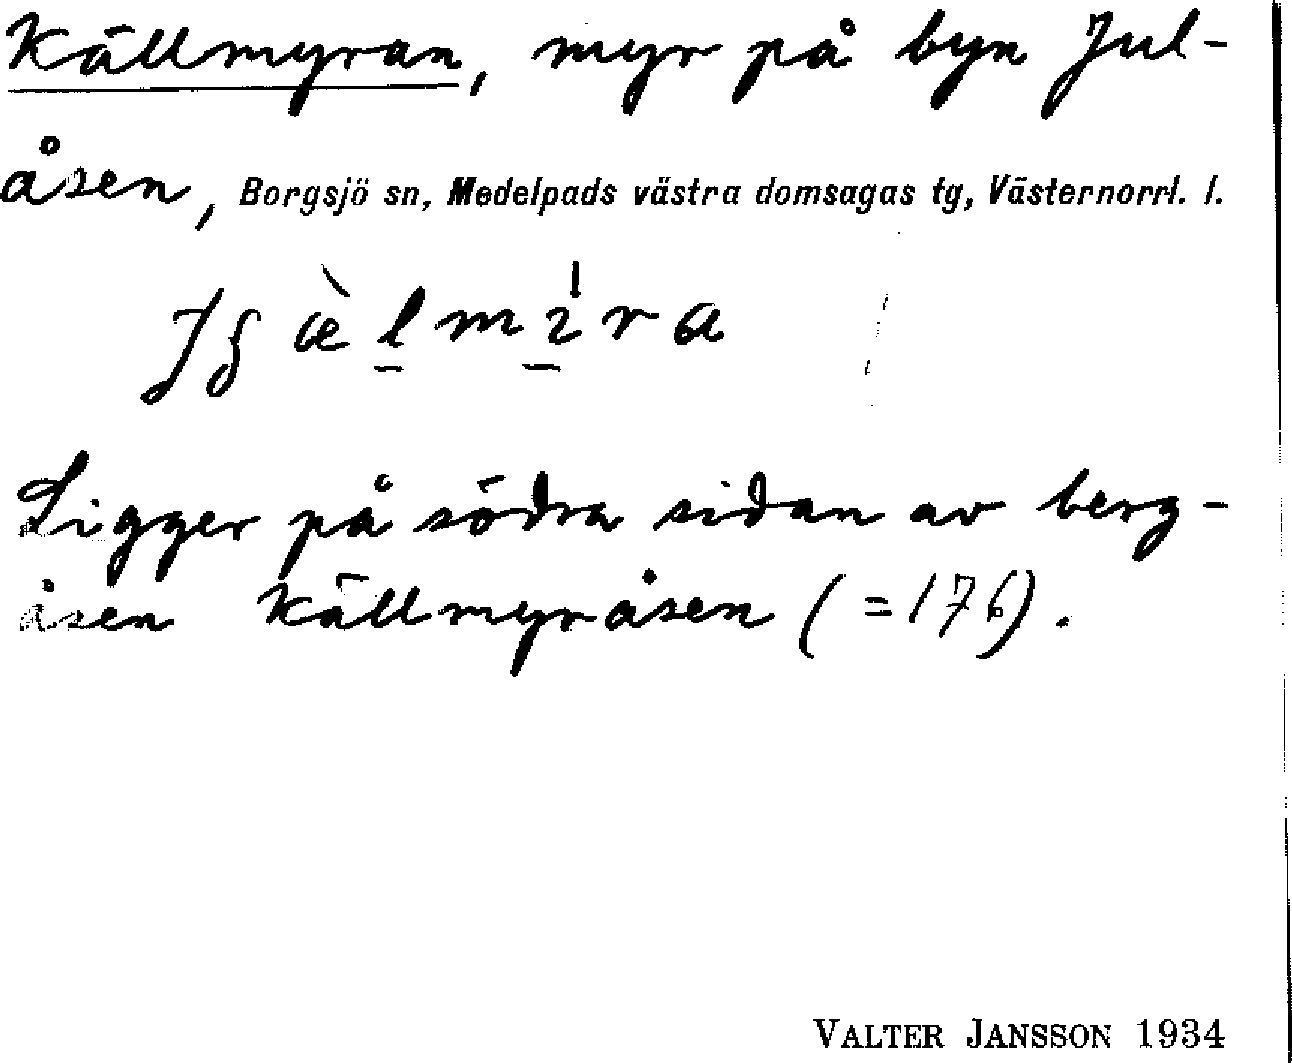 Källmyran, myr på byn Jul-
åsen, Borgsjö sn, Medelpads västra domsagas tg, Västernorrl. l.
Ligger på södra sidan av berg-
åsen Källmyråsen (=176).
VALTER JANSSON 1934